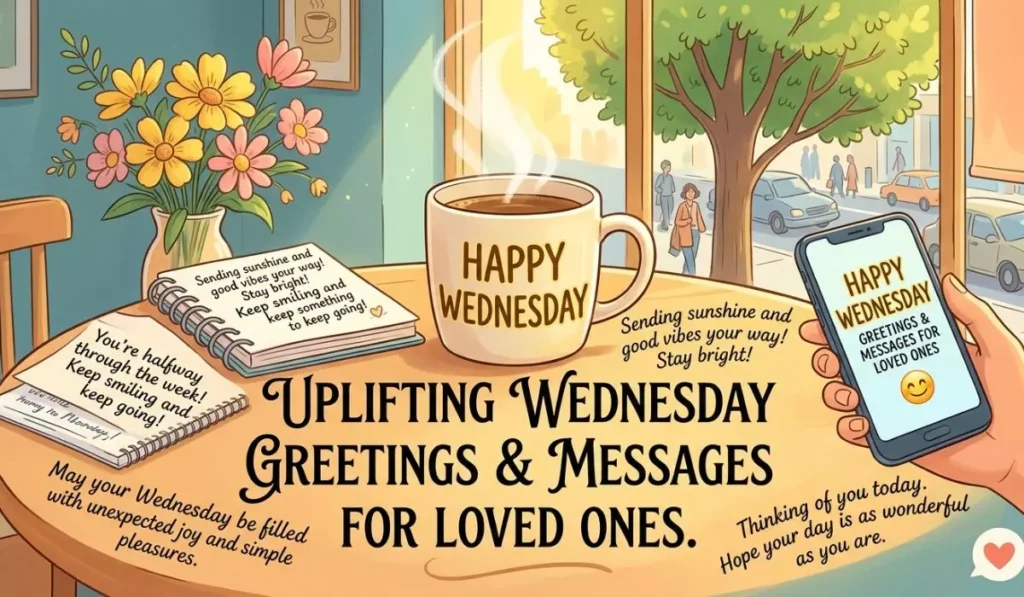 Sending sunshine and
good vibes your way!
Stay bright!
Keep smiling and
keep something
to keep going!
You're halfway
through the week!
Keep smiling and
keep going!
HAPPY
WEDNESDAY
Sending sunshine and
good vibes your way!
Stay bright!
HAPPY
WEDNESDAY
GREETINGS &
MESSAGES FOR
LOVED ONES
UPLIFTING WEDNESDAY
GREETINGS & MESSAGES
FOR LOVED ONES.
May your Wednesday be filled
with unexpected joy and simple
pleasures.
Thinking of you today.
Hope your day is as wonderful
as you are.